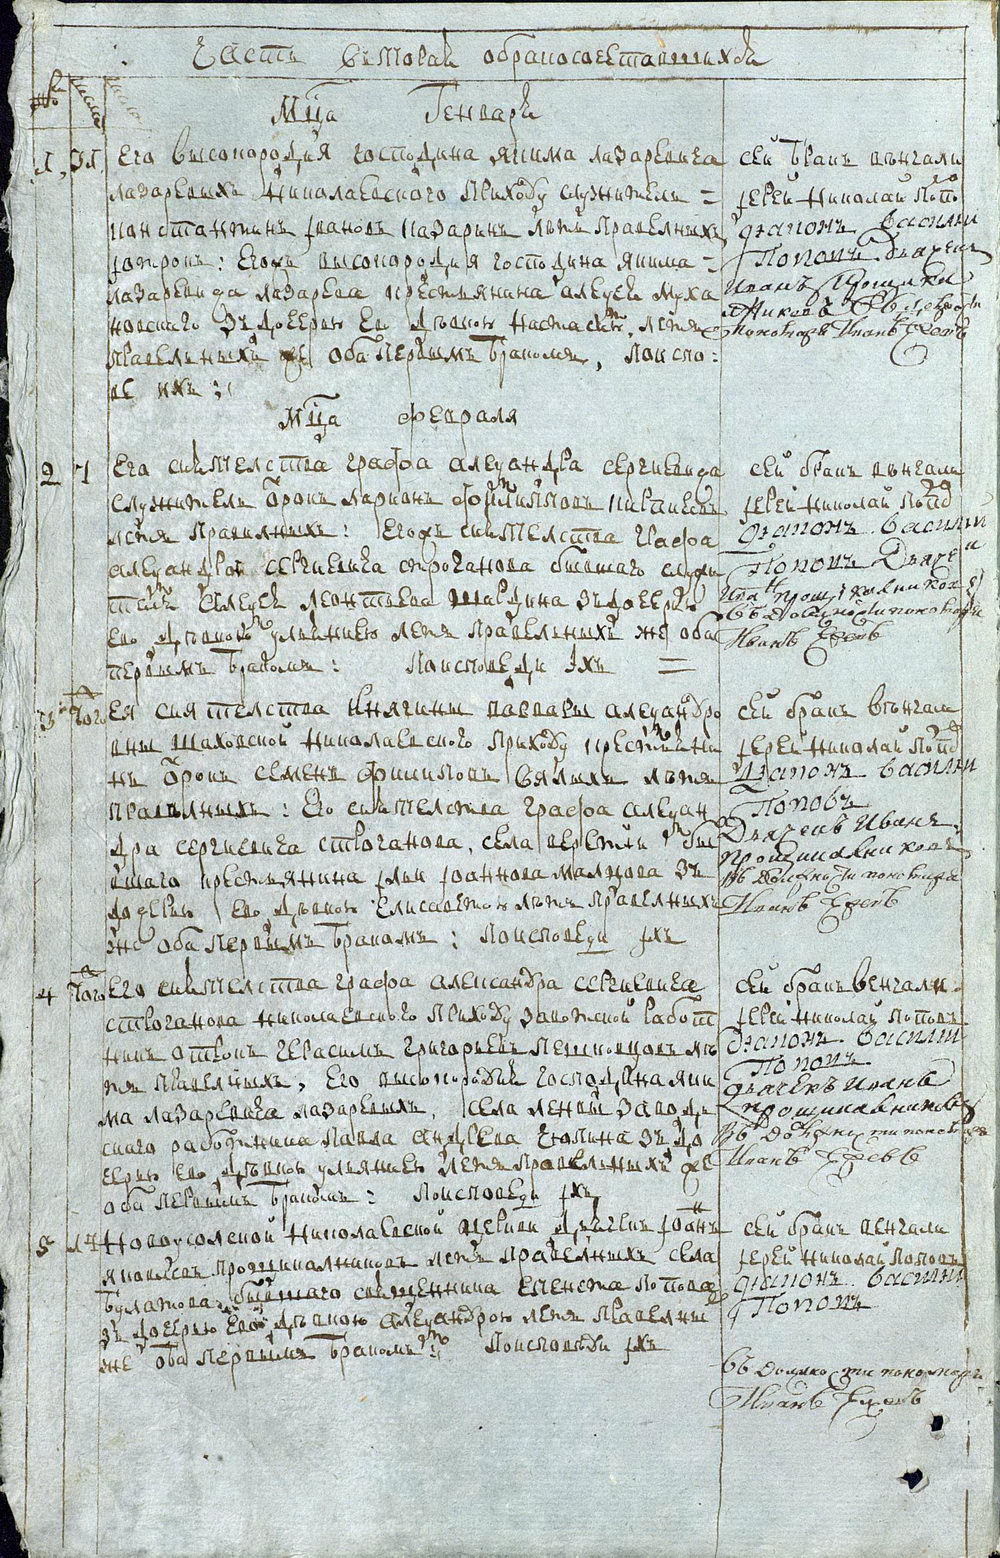 Часть вторая обракосочетавшихся
Мца Генваря
1 31 Его высокородия господина якима лазаревича
лазаревыхъ Николаевского приходу служитель =
константинъ ивановъ назаринъ летъ правелныхъ
отрокъ: Егожъ высокородия господина якима =
лазаревича лазарева крестьянина алеѯея
новского зъ дочерью ево девкою настасьею, летъ
правельныхъ же оба первымъ бракомъ, поиспо:
ве ихъ :
сей бракъ венчали
иерей Николай попо
диаконъ василии
Поповъ Дьячекъ
Иванъ
Пономарь Иванъ
Мца февраля
2 7 Его сиятелства графа алеѯандра сергиевича
служитель отрокъ марианъ филиповъ
летъ правилныхъ: Егожъ сиятелства графа
алеѯандра сергиевича строганова бывшаго служи
теля алеѯея леонтьева зъ дочерью
ево девкою ульяниею летъ правельныхъ же оба
первымъ бракомъ: Поисповеди ихъ =
сей бракъ венчали
иерей Николай попо
диаконъ василии
Поповъ Дьячекъ
Иванъ
въ должности пономаря
Иванъ
3 тогож Ея сиятелства княгини варвары алеѯандро
вны шаховской николаевского приходу крестьяни
нъ отрокъ семенъ филиповъ вялыхъ летъ
правелныхъ: Его сиятелства графа алеѯан
дра сергиевича строганова, села веретии бы
вшаго крестьянина илии иоаннова малцова зъ
дочерью ево девкою елисаветою летъ правелныхъ
же оба первымъ бракомъ: Поисповеди ихъ
сей бракъ венчали
иерей Николай попо
диаконъ василии
Поповъ
Дьячекъ Иванъ
прощикалниковъ
въ должности пономаря
Иванъ
4 тогож Его сиятелства графа александра сергиевича
строганова николаевского приходу заводской работ
никъ отрокъ герасимъ григорьевъ летъ
правелныхъ, Его высокородия господина яки
ма лазаревича лазаревыхъ, села ленвы заводъ
ского работника павла андреева чюпина зъ до
черью ево девкою ульяниею летъ правелныхъ же
оба первымъ бракомъ: Поисповеди ихъ
сей бракъ венчали
иерей Николай поповъ
диаконъ василии
Поповъ
дьячекъ Иванъ
прощикалниковъ
въ должности пономаря
Иванъ
5 14 Новоусолской Николаевской церкви дьячекъ иоаннъ
яковлевъ прощикалниковъ летъ правелныхъ села
булатова бывшаго священника Попова
зъ дочерью ево девкою алеѯандрою летъ правелны
же оба первымъ бракомъ: Поисповеди ихъ
сей бракъ венчали
иерей Николай Поповъ
диаконъ василии
Поповъ
въ должности пономаря
Иванъ